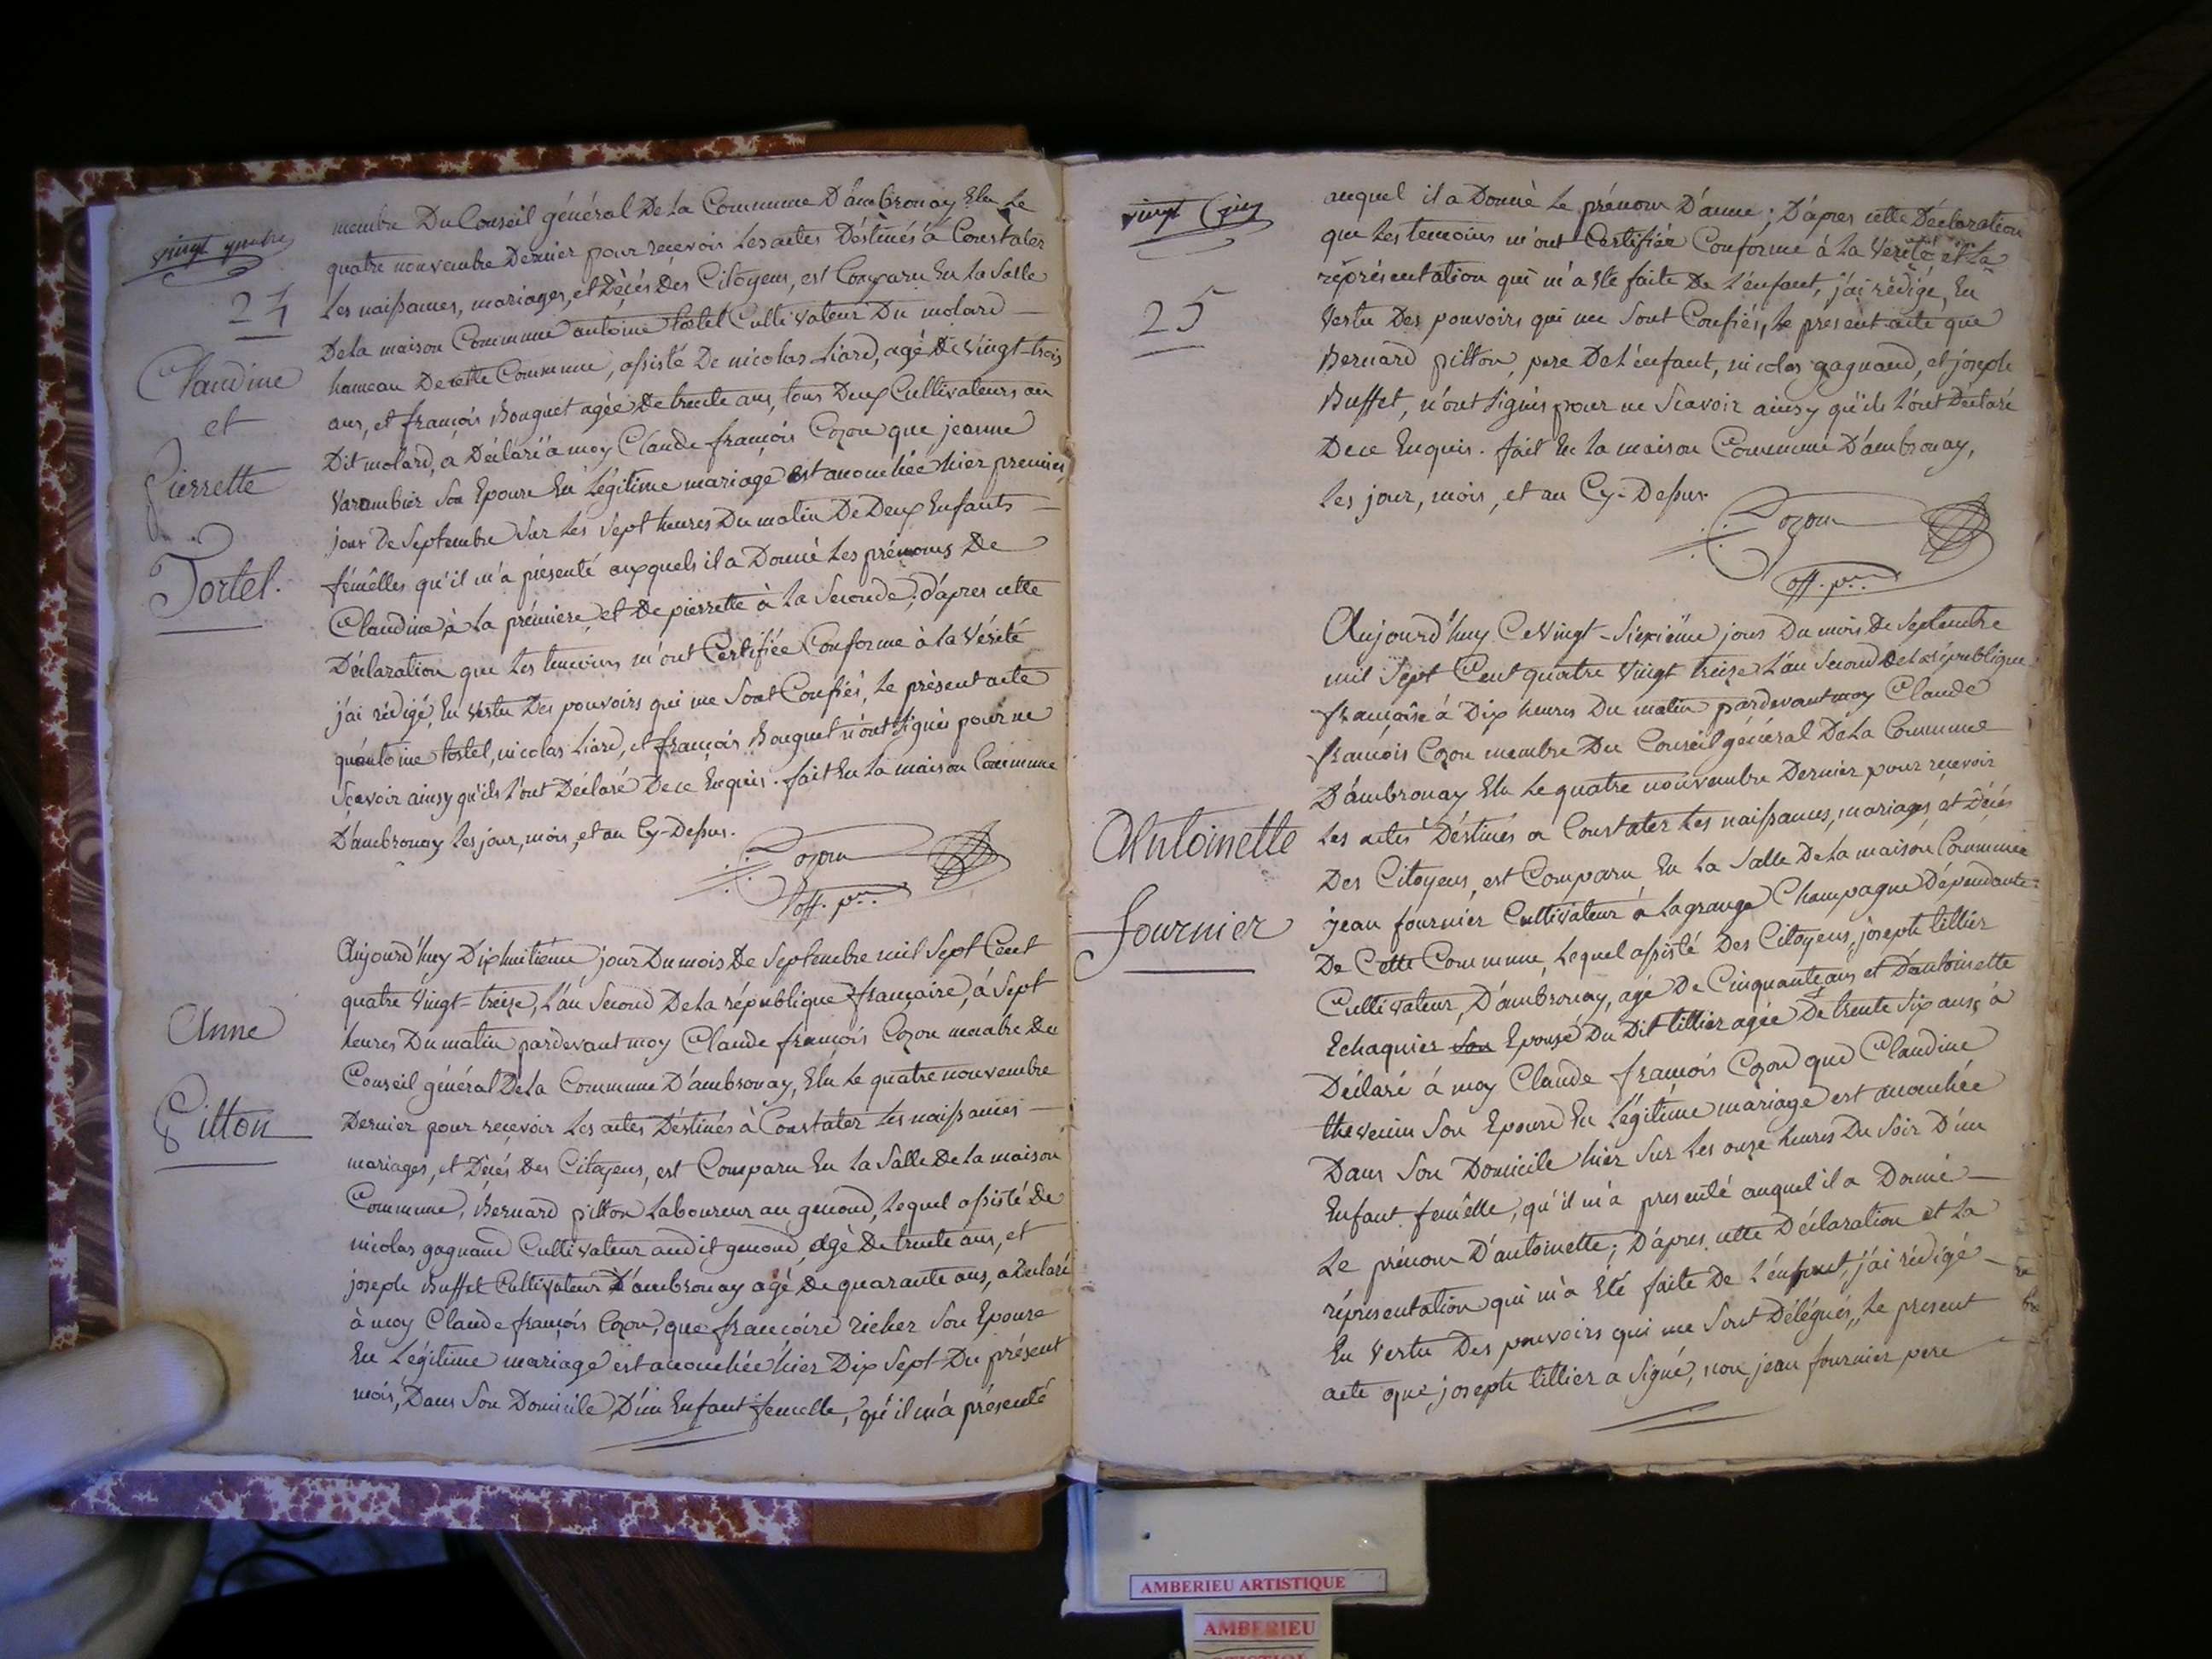 vingt quatre
24
Claudine
et
Pierrette
Tortel.
membre Du Conseil général De La Commune D'ambronay Elu Le
quatre nouvembre Dernier pour recevoir Les actes Déstinés à Constater
Les naissances, mariages, et Décés Des Citoyens, est Comparu En La Salle
De La maison Commune antoine tortel Cultivateur Du molard
hameau De cette Commune, assisté De nicolas Liard, agé De Vingt-trois
ans, et françois Bouguet agée De trente ans, tous Deux Cultivateurs au
Dit molard, a Déclaré à moy Claude françois Cozon que jeanne
Varambier Son Epouse En Légitime mariage est accouchée hier premier
jour De Septembre Sur Les Sept heures Du matin De Deux Enfants
fémêlles qu'il m'a présenté auxquels il a Donné Les prénoms De
Claudine à La prémiere, et De pierrette à La Seconde; d'apres cette
Déclaration que Les temoins m'ont Certifiée Conforme à La Vérité
j'ai rédigé, En Vertu Des pouvoirs qui me Sont Confiés, Le présent acte
qu'antoine tortel, nicolas Liard, et françois Bouguet n'ont Signés pour ne
Scavoir ainsy qu'ils L'ont Déclaré De ce Enquis. fait En La maison Commune
D'ambronay Les jour, mois, et an Cy-Dessus.
Cozon
off. p.
Anne
Pitton
Aujourd'huy Dixhuitième jour Du mois De Septembre mil Sept Cent
quatre Vingt-treize, L'an Second De La république française, à Sept
heures Du matin pardevant moy Claude françois Cozon membre Du
Conseil général De La Commune D'ambronay, Elu Le quatre nouvembre
Dernier pour recevoir Les actes Déstinés à Constater Les naissances
mariages, et Décés Des Citoyens, est Comparu En La Salle De La maison
Commune, Bernard pitton Laboureur au genoud, Lequel assisté De
nicolas gagnand Cultivateur audit genoud, agé De trente ans, et
joseph Buffet Cultivateur D'ambronay agé De quarante ans, a Déclaré
à moy Claude françois Cozon, que françoise richer Son Epouse
En Légitime mariage est accouchée hier Dix Sept Du présent
mois, Dans Son Domicile, D'un Enfant femelle, qu'il m'a présenté
vingt Cinq
25
auquel il a Donné Le prénom D'anne; D'apres cette Déclaration
que Les temoins m'ont Certifiée Conforme à La Vérité et La
réprésentation qui m'a été faite De L'enfant, j'ai rédigé, En
Vertu Des pouvoirs qui me Sont Confiés, Le présent acte que
Bernard pitton, pere De L'enfant, nicolas gagnand, et joseph
Buffet, n'ont Signés pour ne Scavoir ainsy qu'ils L'ont Déclaré
De ce Enquis. fait En La maison Commune D'ambronay,
Les jour, mois, et an Cy-Dessus.
Cozon
off. p.
Antoinette
fournier
Aujourd'huy Ce Vingt-Sixième jour Du mois De Septembre
mil Sept Cent quatre Vingt treize L'an Second De La république
française à Dix heures Du matin pardevant moy Claude
françois Cozon membre Du Conseil général De La Commune
D'ambronay Elu Le quatre nouvembre Dernier pour recevoir
Les actes Déstinés à Constater Les naissances, mariages et Décés
Des Citoyens, est Comparu En La Salle De La maison Commune
jean fournier Cultivateur à Lagrange Champagne Dépendante
De Cette Commune, Lequel assisté Des Citoyens, joseph tillier
Cultivateur, D'ambronay, agé De Cinquante ans et D'antoinette
Echaquier Son Epouse Du Dit tillier agée De trente Six ans, a
Déclaré à moy Claude françois Cozon que Claudine
thevenin Son Epouse En Légitime mariage est accouchée
Dans Son Domicile hier Sur Les onze heures Du Soir D'un
Enfant femêlle, qu'il m'a presenté auquel il a Donné
Le prénom D'antoinette; D'apres cette Déclaration et La
réprésentation qui m'a Eté faite De L'enfant, j'ai rédigé
En Vertu Des pouvoirs qui me Sont Délégués, Le present
acte que joseph tillier a Signé, non jean fournier pere
AMBERIEU ARTISTIQUE
AMBERIEU